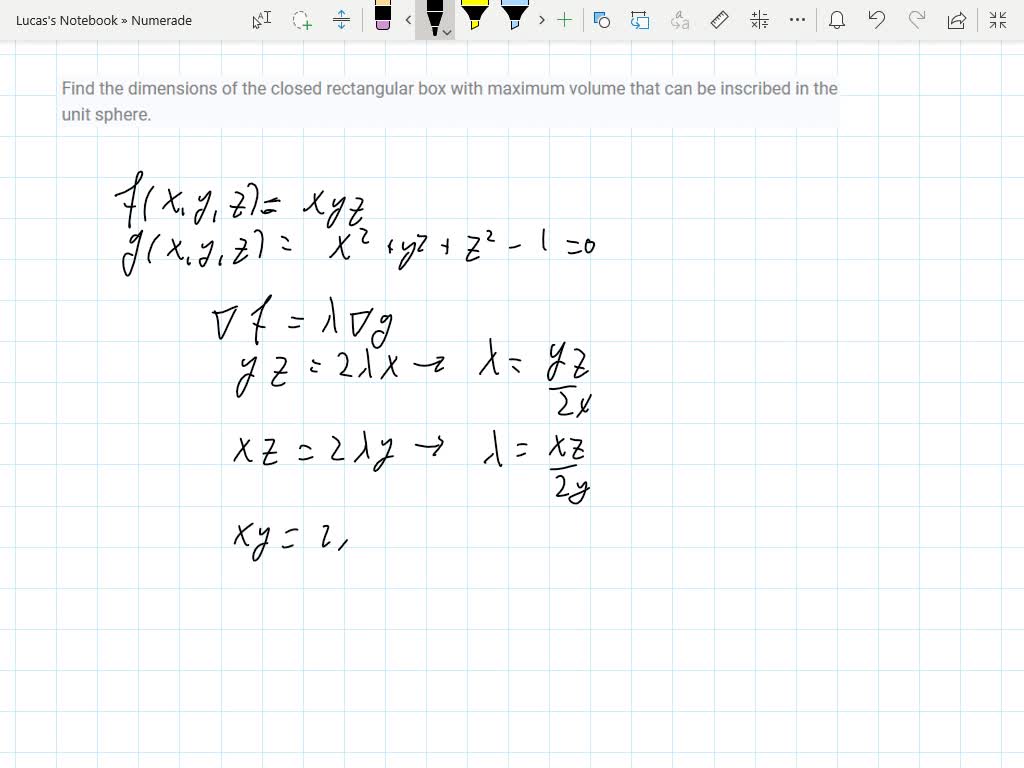 Lucas's Notebook » Numerade
Find the dimensions of the closed rectangular box with maximum volume that can be inscribed in the
unit sphere.
f(x,y,z)= xyz
g(x,y,z) = x² + y² + z² - 1 = 0
∇f = λ∇g
yz = 2λx → λ = yz/2x
xz = 2λy → λ = xz/2y
xy = 2